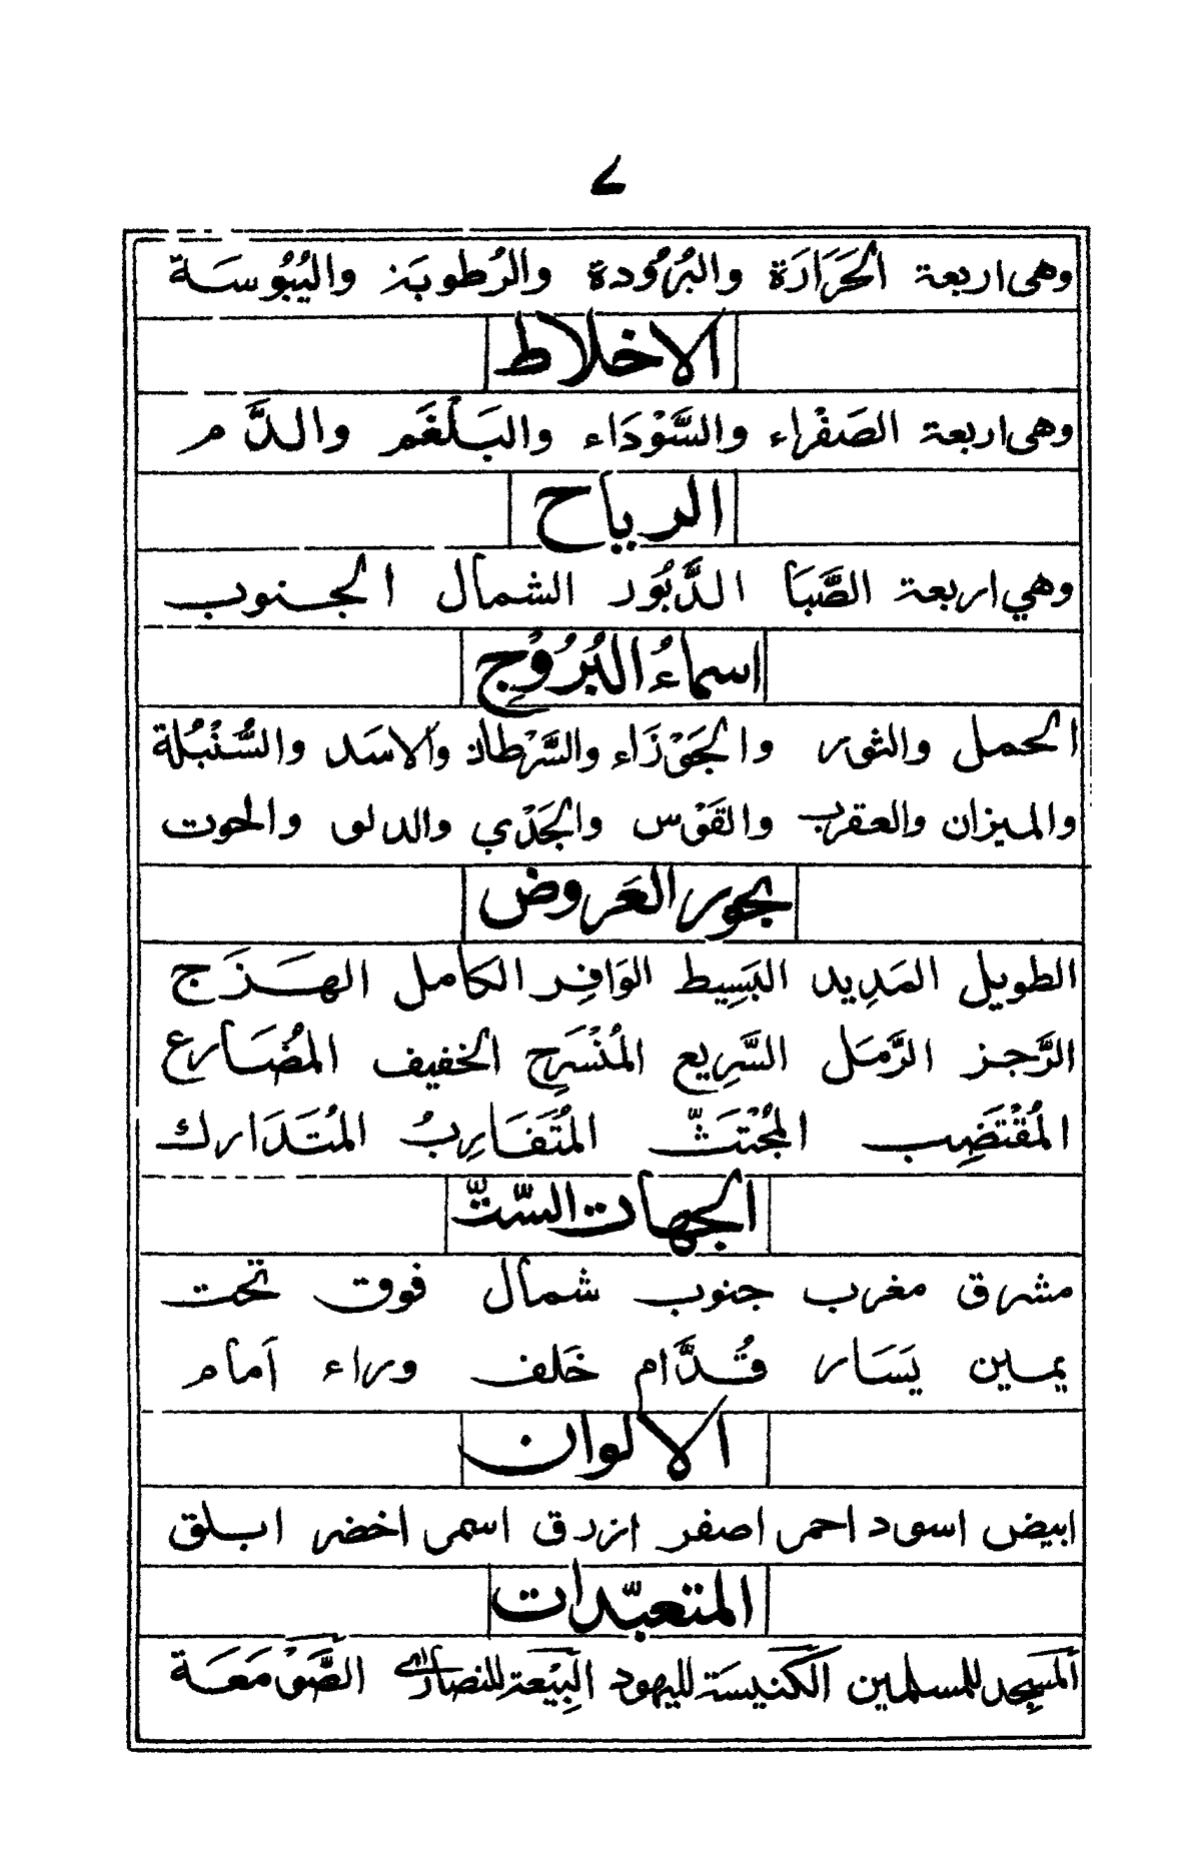 ٧
وهى اربعة الحَرَارَة والبُرُودة والرُطوبَة واليُبُوسَة
الاخلاط
وهى اربعة الصَفْراء والسَّوْدَاء والبَلْغَم والدَّم
الرياح
وهي اربعة الصَّبَا الدَّبُوْر الشمال الجنوب
اسماءُ البُرُوْج
الحمل والثور والجَوْزَاء والسَّرْطان والاسَد والسُّنْبُلة
والميزان والعقرب والقَوْس والجَدْي والدلو والحوت
بحور العَروض
الطويل المَدِيد البَسِيط الوَافِر الكامل الهَزَج
الرَّجز الرَّمَل السَّرِيع المُنْسَرِح الخفيف المُضَارع
المُقْتَضِب المُجْتَثّ المُتَقَارِبُ المُتَدَارك
الجهات السّتّ
مشرق مغرب جنوب شمال فوق تحت
يمين يَسَار قُدَّام خَلف وراء اَمام
الالوان
ابيض اسود احمر اصفر ازرق اسمر اخضر ابلق
المتعبّدات
اَلمَسجِد للمسلمين الكَنيسَة لليهود البِيْعَة للنصارى الصَّوْمَعَة